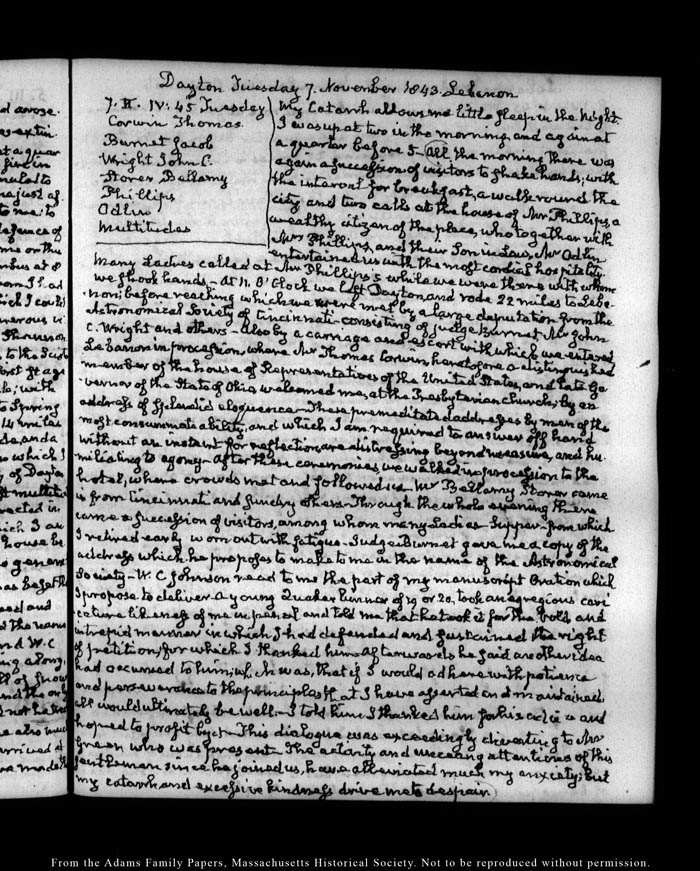 Dayton Tuesday 7. November 1843. Lebanon
7. II. IV:45 Tuesday
Corwin Thomas.
Burnet Jacob
Wright John C.
Storer Bellamy
Phillips
Odlin
Multitudes
My Catarrh allows me little sleep in the Night.
I was up at two in the morning, and again at
a quarter before 5. All the morning there was
again a succession of visitors to shake hands; with
the interval for breakfast, a walk round the
city and two calls at the house of Mr Phillips, a
wealthy citizen of the place, who together with
Mrs Phillips, and their Son in Law, Mr Odlin
entertained us with the most cordial hospitality.
Many Ladies called at Mr Phillips's while we were there with whom
we shook hands. At 11. O'Clock we left Dayton, and rode 22 miles to Leba-
non; before reaching which we were met by a large deputation from the
Astronomical Society of Cincinnati consisting of Judge Burnet Mr John
C. Wright and others. Also by a carriage and escort with which we entered
Lebanon in procession, where Mr Thomas Corwin, heretofore a distinguished
member of the house of Representatives of the United States, and late Go-
vernor of the State of Ohio, welcomed me, at the Presbyterian church, by an
address of splendid eloquence. These premeditated addresses by men of the
most consummate ability, and which I am required to answer off hand
without an instant for reflection, are distressing beyond measure, and hu-
miliating to agony. After these ceremonies, we walked in procession to the
hotel, where crowds met and followed us. Mr Bellamy Storer came
in from Cincinnati and sundry others. Through the whole evening there
came a succession of visitors, among whom many Ladies. Supper, from which
I retired early worn out with fatigue. Judge Burnet gave me a copy of the
address which he proposes to make to me in the name of the Astronomical
Society. W. C. Johnson read to me the part of my manuscript Oration which
I propose to deliver. A young Quaker of 19 or 20, took an egregious cari
cature likeness of me in pencil and told me that he took it for the bold and
intrepid manner in which I had defended and sustained the right
of petition, for which I thanked him. Afterwards he said another idea
had occurred to him; it was, that if I would adhere with patience
and perseverance to the principles that I have asserted and maintained
all would ultimately be well. I told him I thanked him for his advice and
hoped to profit by it. This dialogue was exceedingly diverting to Mr
who was present. The and attentions of this
gentleman since he joined us, have alleviated much my anxiety; but
my catarrh and excessive kindness drive me to despair
From the Adams Family Papers, Massachusetts Historical Society. Not to be reproduced without permission.